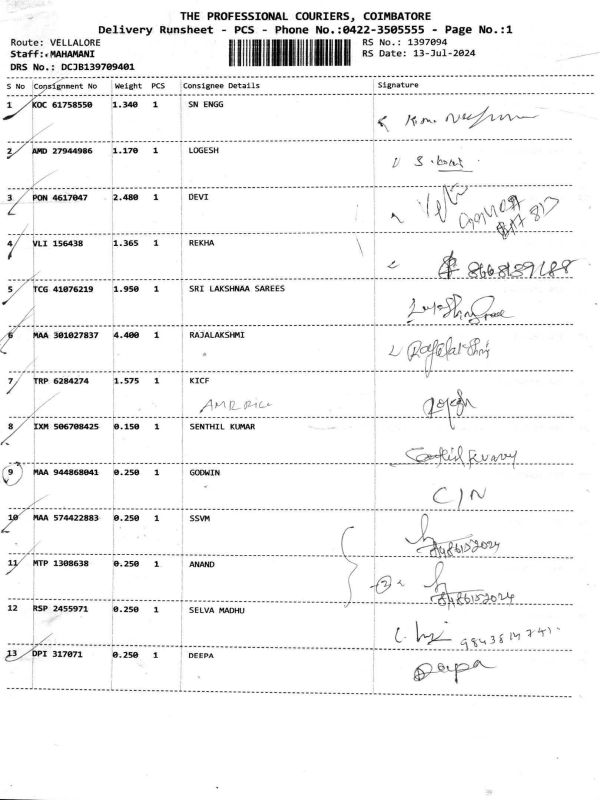 THE PROFESSIONAL COURIERS, COIMBATORE
Delivery Runsheet - PCS - Phone No.:0422-3505555 - Page No.:1
Route: VELLALORE RS No.: 1397094
Staff: MAHAMANI RS Date: 13-Jul-2024
DRS No.: DCJB139709401
S No Consignment No Weight PCS Consignee Details Signature
1 KOC 61758550 1.340 1 SN ENGG
2 AMD 27944986 1.170 1 LOGESH
3 PON 4617047 2.480 1 DEVI
4 VLI 156438 1.365 1 REKHA
5 TCG 41076219 1.950 1 SRI LAKSHNAA SAREES
6 MAA 301027837 4.400 1 RAJALAKSHMI
Rajalakshmi
7 TRP 6284274 1.575 1 KICF
8 IXM 506708425 0.150 1 SENTHIL KUMAR
Senthil Kumar
9 MAA 944868041 0.250 1 GODWIN
C/N
10 MAA 574422883 0.250 1 SSVM
11 MTP 1308638 0.250 1 ANAND
2
12 RSP 2455971 0.250 1 SELVA MADHU
13 DPI 317071 0.250 1 DEEPA
Deepa